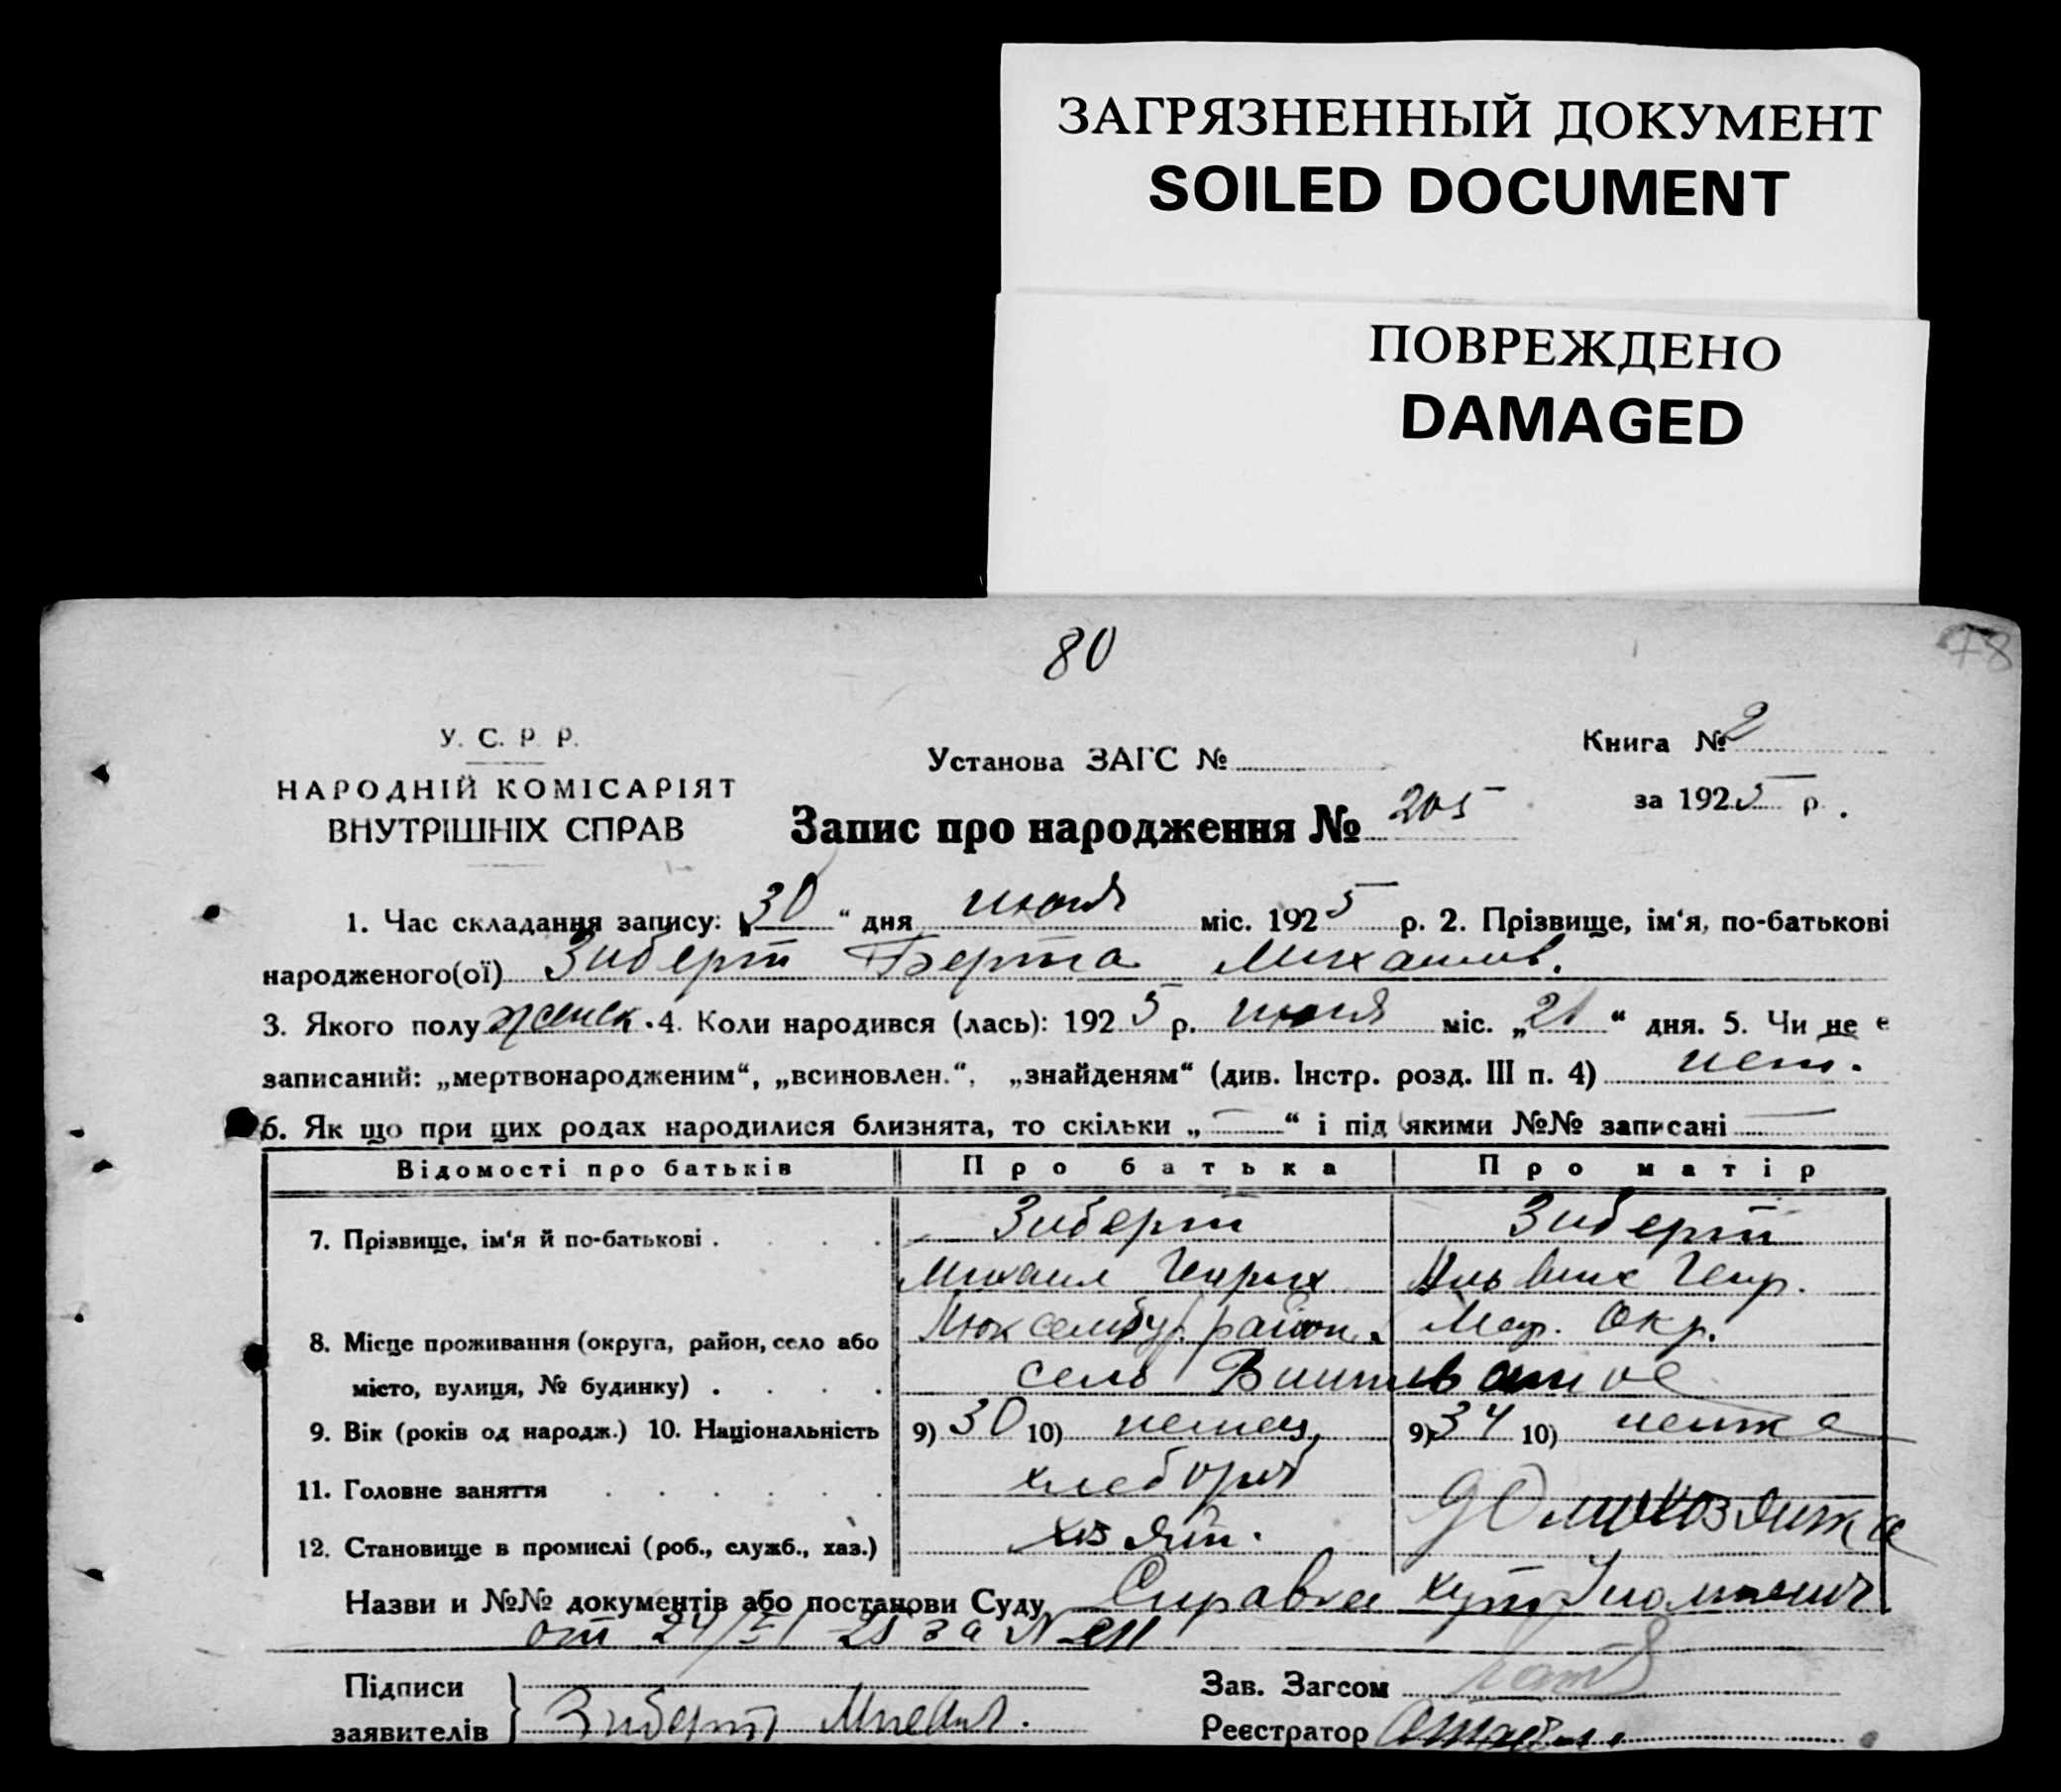 ЗАГРЯЗНЕННЫЙ ДОКУМЕНТ
SOILED DOCUMENT
ПОВРЕЖДЕНО
DAMAGED
80
78
У. С. Р. Р.
НАРОДНІЙ КОМІСАРІЯТ
ВНУТРІШНІХ СПРАВ
Установа ЗАГС №
Книга № 2
за 1925 р.
Запис про народження № 205
1. Час складання запису: „30“ дня июля міс. 1925 р. 2. Прізвище, ім‘я, по-батькові
народженого(ої) Зиберт Берта Михайлов.
3. Якого полу женск. 4. Коли народився (лась): 1925 р. июля міс. „21“ дня. 5. Чи не є
записаний: „мертвонародженим“, „всиновлен.“, „знайденям“ (див. Інстр. розд. III п. 4) нет.
6. Як що при цих родах народилися близнята, то скільки „—“ і під якими №№ записані —
Відомості про батьків Про батька Про матір
7. Прізвище, ім‘я й по-батькові . Зиберт Зиберт
Михаил Генрих Генр.
8. Місце проживання (округа, район, село або Люксембур. район. Мар. Окр.
місто, вулиця, № будинку) . село
9. Вік (років од народж.) 10. Національність 9) 30 10) немец, 9) 34 10) немка
11. Головне заняття хлебороб домохозяйка
12. Становище в промислі (роб., служб., хаз.) хозяин.
Назви и №№ документів або постанови Суду Справка
от 24/VI 25 за №
Підписи
заявителів Зиберт
Зав. Загсом
Реєстратор